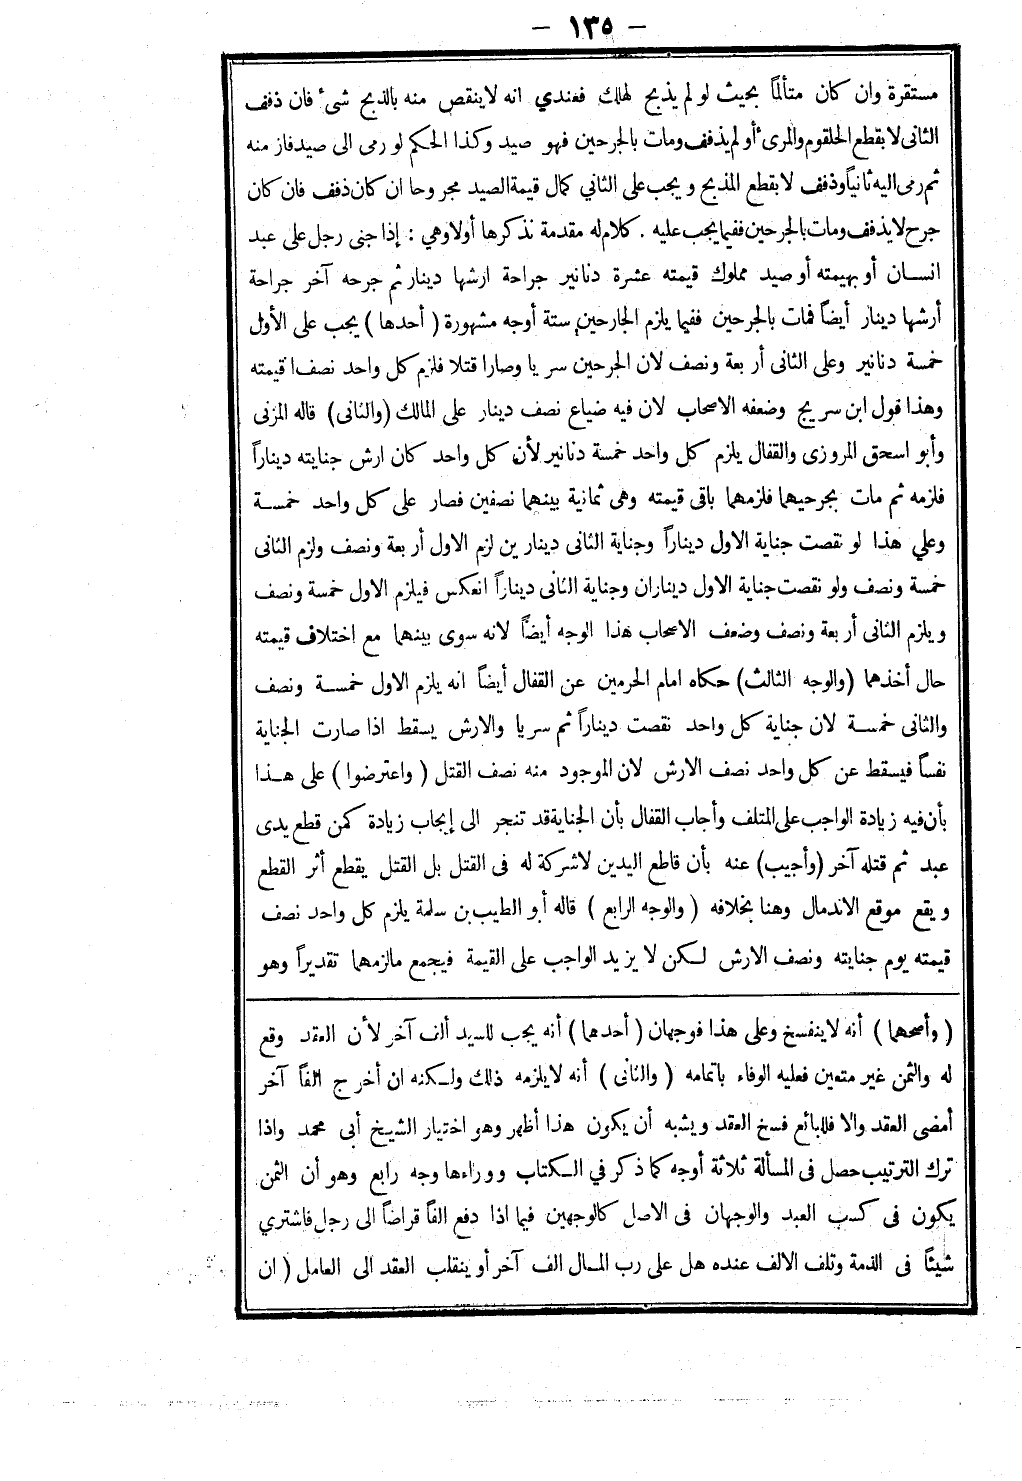 — ١٣٥ —
مستقرة وان كان متألماً بحيث لو لم يذبح لهلك فعندي انه لاينقص منه بالذبح شىء فان ذفف
الثانى لا بقطع الحلقوم والمرىء أو لم يذفف ومات بالجرحين فهو صيد وكذا الحكم لو رمى الى صيد فاز منه
ثم رمى اليه ثانياً وذفف لا بقطع المذبح ويجب على الثاني كمال قيمة الصيد مجروحا ان كان ذفف فان كان
جرح لا يذفف ومات بالجرحين ففيما يجب عليه . كلام له مقدمة نذكرها أولا وهي : إذا جنى رجل على عبد
انسان أو بهيمته أو صيد مملوك قيمته عشرة دنانير جراحة ارشها دينار ثم جرحه آخر جراحة
أرشها دينار أيضاً فمات بالجرحين ففيما يلزم الجارحين ستة أوجه مشهورة ( أحدها ) يجب على الأول
خمسة دنانير وعلى الثانى أربعة ونصف لان الجرحين سريا وصارا قتلا فلزم كل واحد نصف قيمته
وهذا قول ابن سريج وضعفه الاصحاب لان فيه ضياع نصف دينار على المالك (والثانى) قاله المزنى
وأبو اسحق المروزى والقفال يلزم كل واحد خمسة دنانير لأن كل واحد كان ارش جنايته ديناراً
فلزمه ثم مات بجرحيهما فلزمهما باقى قيمته وهى ثمانية بينهما نصفين فصار على كل واحد خمسة
وعلي هذا لو نقصت جناية الاول ديناراً وجناية الثانى دينارين لزم الاول أربعة ونصف ولزم الثانى
خمسة ونصف ولو نقصت جناية الاول ديناران وجناية الثانى ديناراً انعكس فيلزم الاول خمسة ونصف
ويلزم الثانى أربعة ونصف وضعف الاصحاب هذا الوجه أيضاً لانه سوى بينهما مع اختلاف قيمته
حال أخذهما (والوجه الثالث) حكاه امام الحرمين عن القفال أيضاً انه يلزم الاول خمسة ونصف
والثانى خمسة لان جناية كل واحد نقصت ديناراً ثم سريا والارش يسقط اذا صارت الجناية
نفساً فيسقط عن كل واحد نصف الارش لان الموجود منه نصف القتل ( واعترضوا ) على هذا
بأن فيه زيادة الواجب على المتلف وأجاب القفال بأن الجناية قد تنجر الى إيجاب زيادة كمن قطع يدى
عبد ثم قتله آخر (وأجيب) عنه بأن قاطع اليدين لا شركة له فى القتل بل القتل يقطع أثر القطع
ويقع موقع الاندمال وهنا بخلافه ( والوجه الرابع ) قاله أبو الطيب بن سلمة يلزم كل واحد نصف
قيمته يوم جنايته ونصف الارش لكن لا يزيد الواجب على القيمة فيجمع مالزمهما تقديراً وهو
( وأصحهما ) أنه لاينفسخ وعلى هذا فوجهان ( أحدهما ) أنه يجب للسيد ألف آخر لأن العقد وقع
له والثمن غير متعين فعليه الوفاء باتمامه ( والثانى ) أنه لايلزمه ذلك ولكنه ان أخرج الفاً آخر
أمضى العقد والا فللبائع فسخ العقد ويشبه أن يكون هذا أظهر وهو اختيار الشيخ أبى محمد واذا
ترك الترتيب حصل فى المسألة ثلاثة أوجه كما ذكر في الكتاب ووراءها وجه رابع وهو أن الثمن
يكون فى كسب العبد والوجهان فى الاصل كالوجهين فيما اذا دفع الفاً قراضاً الى رجل فاشتري
شيئاً فى الذمة وتلف الالف عنده هل على رب المال الف آخر أو ينقلب العقد الى العامل ( ان